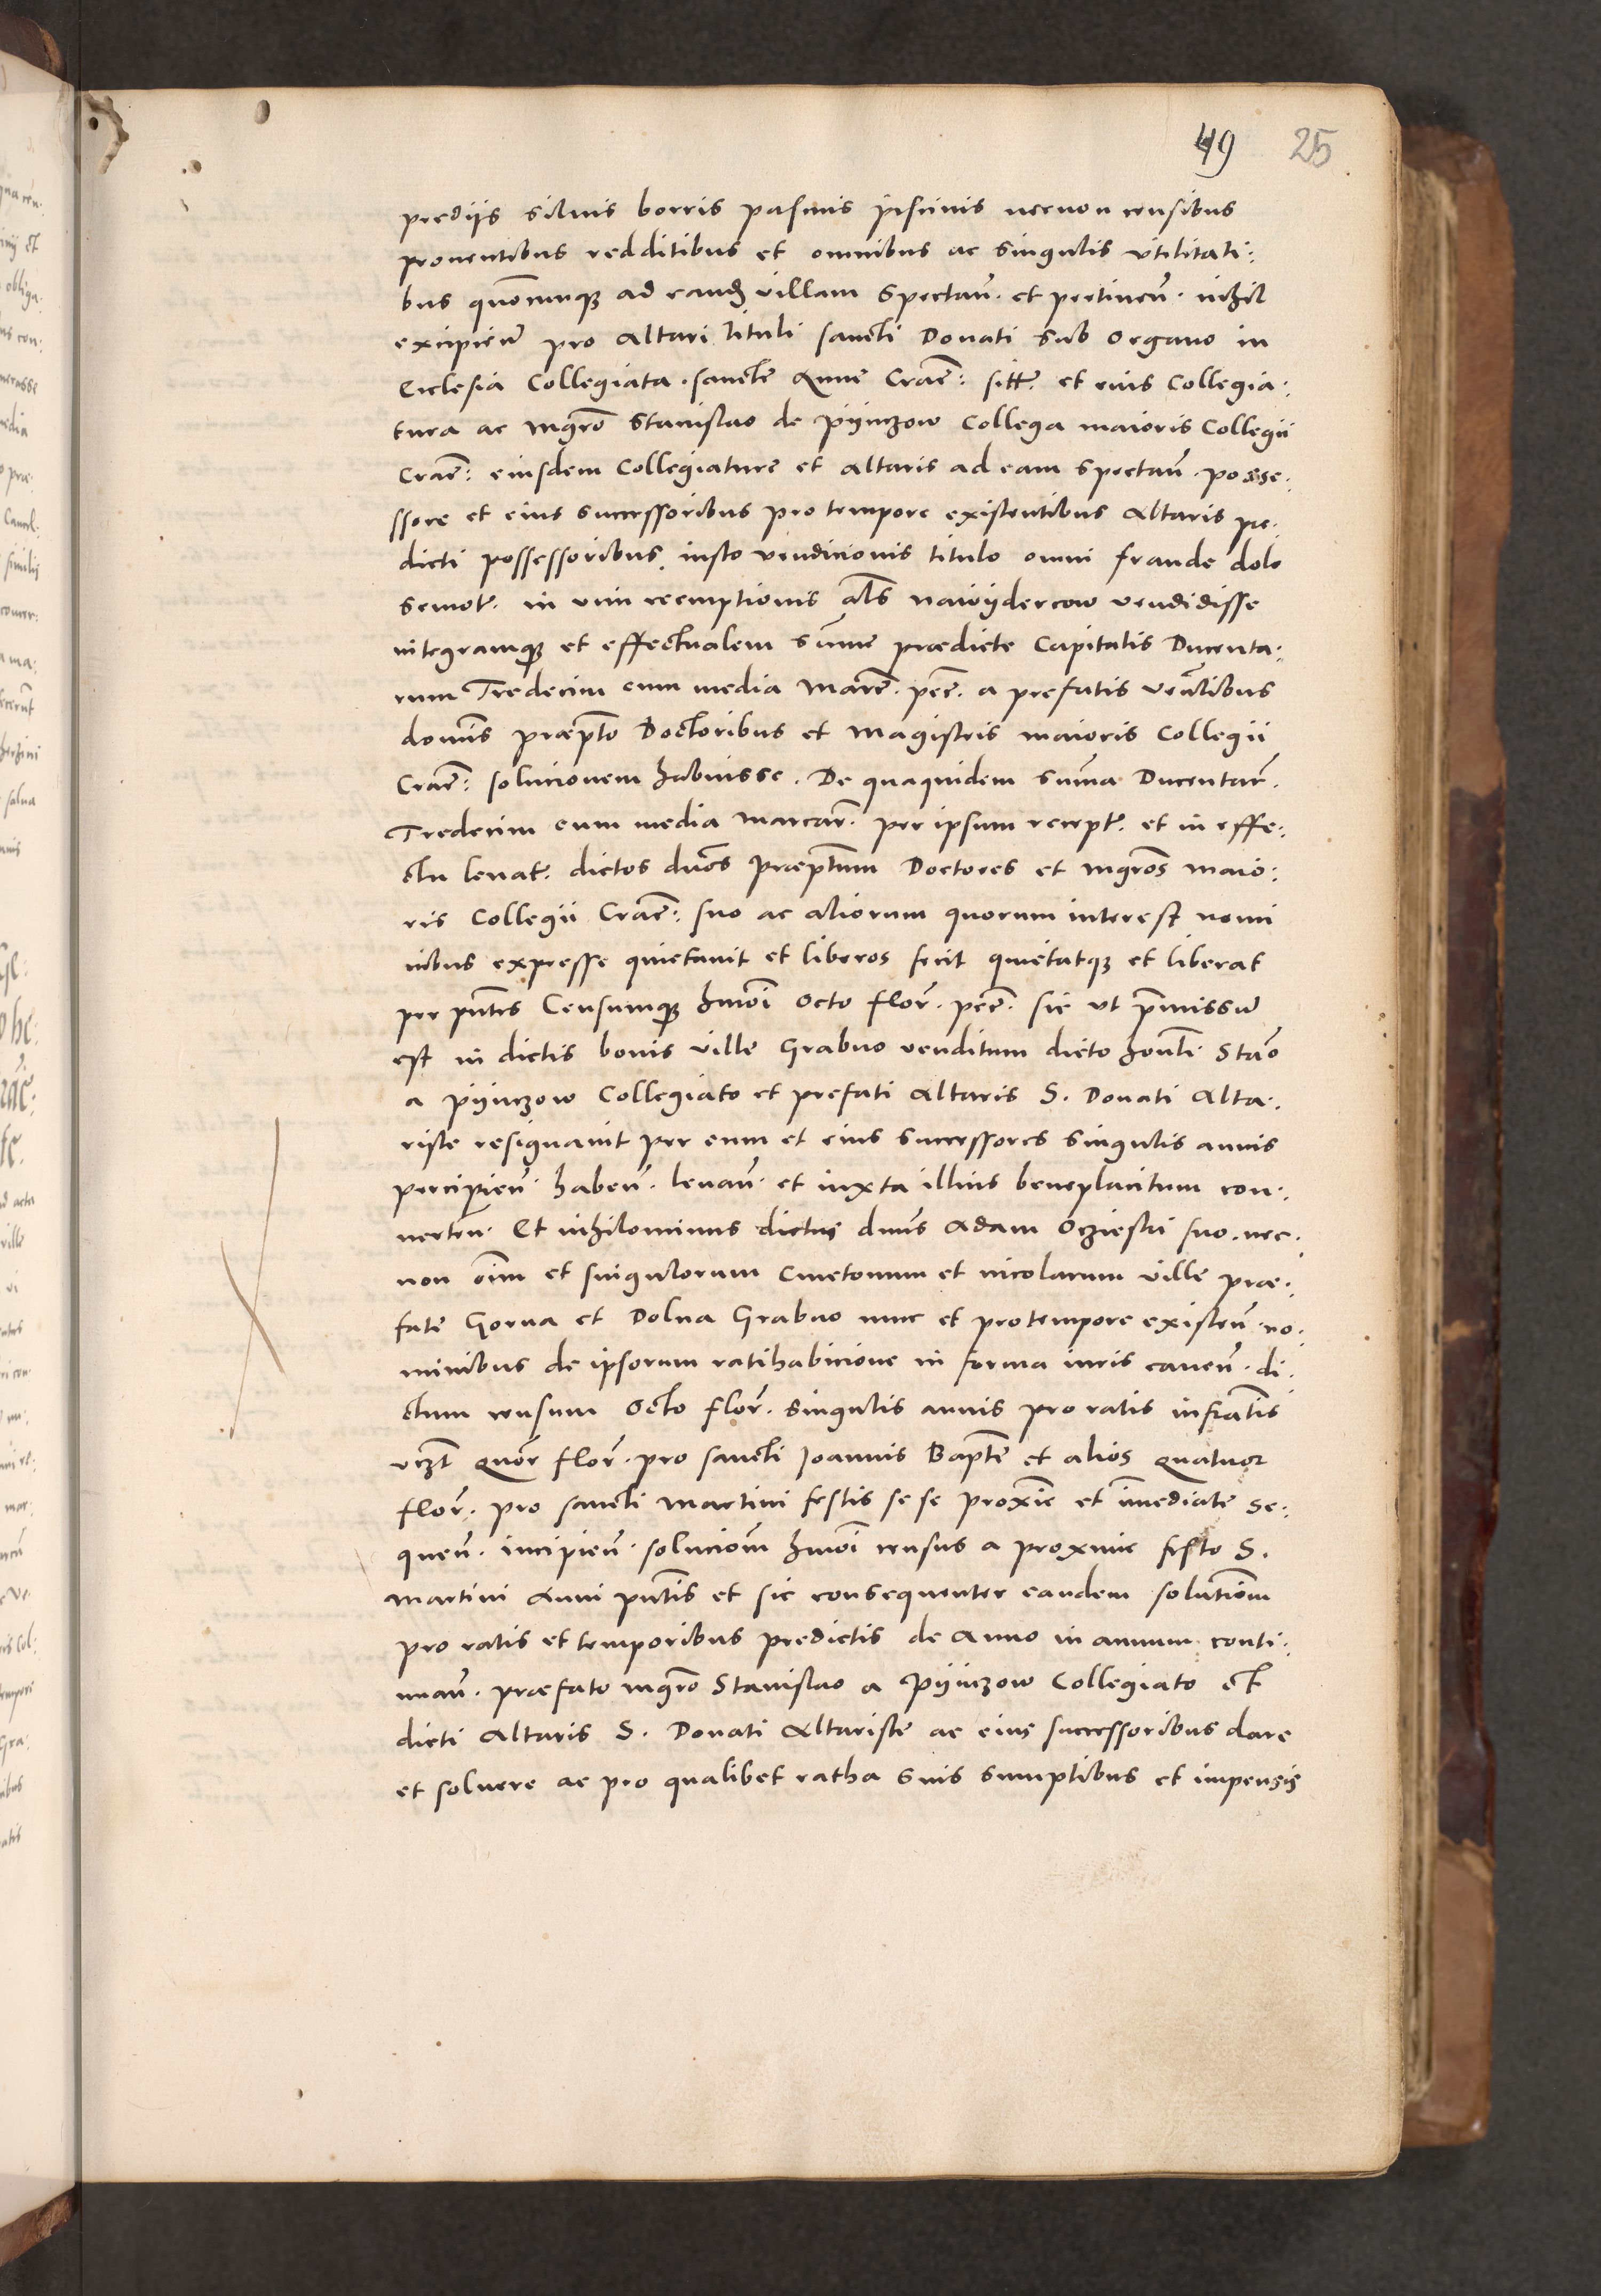 49 25
prediis siluis borris pascuis piscinis necnon censibus
prouentibus redditibus et omnibus ac singulis vtilitati:
bus quōcunqꝫ ad eandꝫ villam spectan̄. et pertinen̄. nihil
excipien̄ pro Altari tituli sancti Donati sub organo in
Ecclesia Collegiata. sancte Anne Crac̄: sitt. et eius Collegia:
tura ac mgr̄o Stanislao de pÿnczow Collega maioris Collegii
Crac̄: eiusdem Collegiature et altaris ad eam spectan̄. posse:
ssore et eius successoribus pro tempore existentibus Altaris pre:
dicti possessoribus. iusto vendicionis titulo omni fraude dolo
semot. in vim reemptionis al̄s nawÿdercow vendidisse
integramqꝫ et effectualem sūme prædicte Capitalis Ducenta:
rum Tredecim cum media marc̄. pec̄. a prefatis venl̄ibus
domīs præpto Doctoribus et Magistris maioris Collegii
Crac̄: solucionem habuisse. De quaquidem sūma Ducentar̄.
Tredecim cum media marcar̄. per ipsum recept. et in effe:
ctu leuat. dictos dn̄os præptum Doctores et mgr̄os maio:
ris Collegii Crac̄: suo ac aliorum quorum interest nomi
nibus expresse quietauit et liberos fecit quietatqꝫ et liberat
per pn̄tes Censumqꝫ hmōi octo flor̄. pec̄. sic vt p̄missum
est in dictis bonis ville Grabno venditum dicto hon̄li Stāo
a pÿnczow Collegiato et prefati Altaris S. Donati Alta:
riste resignauit per eum et eius successores singulis annis
percipien̄. haben̄. leuan̄. et iuxta illius beneplacitum con:
uerten. Et nihilominus dictus dn̄us Adam Ocziesli suo. nec:
non oīm et singulorum cmetonum et incolarum ville præ:
fate Gorna et Dolna Grabno nunc et pro tempore existen̄. no:
minibus de ipsorum ratihabicione in forma iuris cauen̄. di:
ctum censum octo flor̄. singulis annis pro ratis infrātis
vczt quōr flor̄. pro sancti Joannis Bapt̄e et alios quatuor
flor̄. pro sancti Martini festis se se proxīe et im̄ediate se:
quen̄. incipien̄. soluciōm hmōi census a proxime festo S.
Martini Anni pn̄tis et sic consequenter eandem solutiōm
pro ratis et temporibus predictis de Anno in annum conti:
nuan̄. præfato mgr̄o Stanislao a pÿnczow Collegiato et
dicti Altaris S. Donati Altariste ac eius successoribus dare
et soluere ac pro qualibet ratha suis sumptibus et impensis